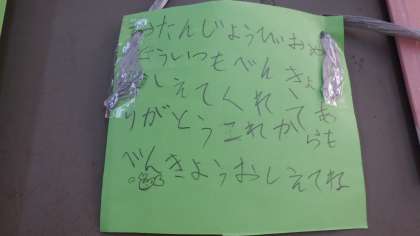 おたんじょうびおめ
とういつもべんきょ
おしえてくれてあ
りがとうこれからも
べんきょうおしえてね